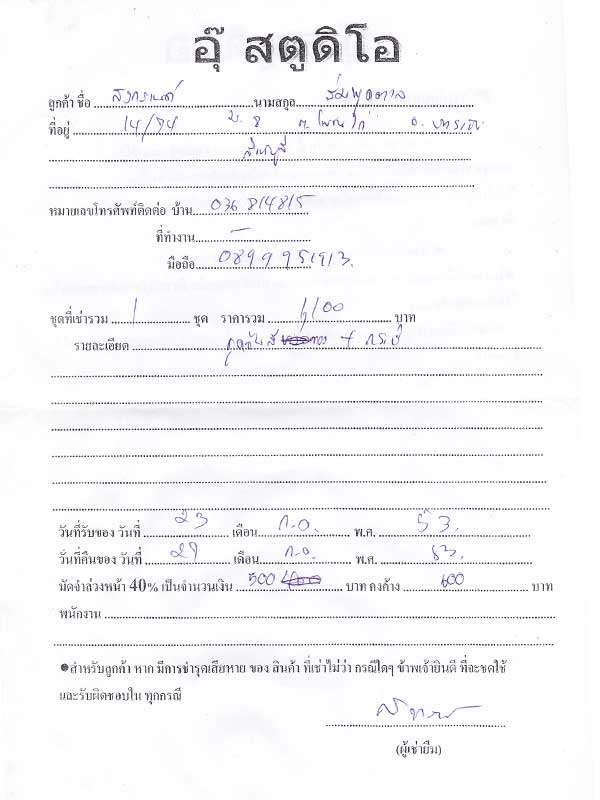 อุ๊ สตูดิโอ
ลูกค้า ชื่อ ........ นามสกุล ........
ที่อยู่ 14/94 ม. 8 ต. อ.
หมายเลขโทรศัพท์ติดต่อ บ้าน 036 814815
ที่ทำงาน -
มือถือ 0899951913.
ชุดที่เช่ารวม 1 ชุด ราคารวม 1,100 บาท
รายละเอียด + กระบี่
วันที่รับของ วันที่ 23 เดือน ก.ค. พ.ศ. 53.
วันที่คืนของ วันที่ 29 เดือน ก.ค. พ.ศ. 53.
มัดจำล่วงหน้า 40% เป็นจำนวนเงิน 500 บาท คงค้าง 600 บาท
พนักงาน
●สำหรับลูกค้า หาก มีการชำรุดเสียหาย ของ สินค้า ที่เช่าไม่ว่า กรณีใดๆ ข้าพเจ้ายินดี ที่จะชดใช้
และรับผิดชอบใน ทุกกรณี
(ผู้เช่ายืม)